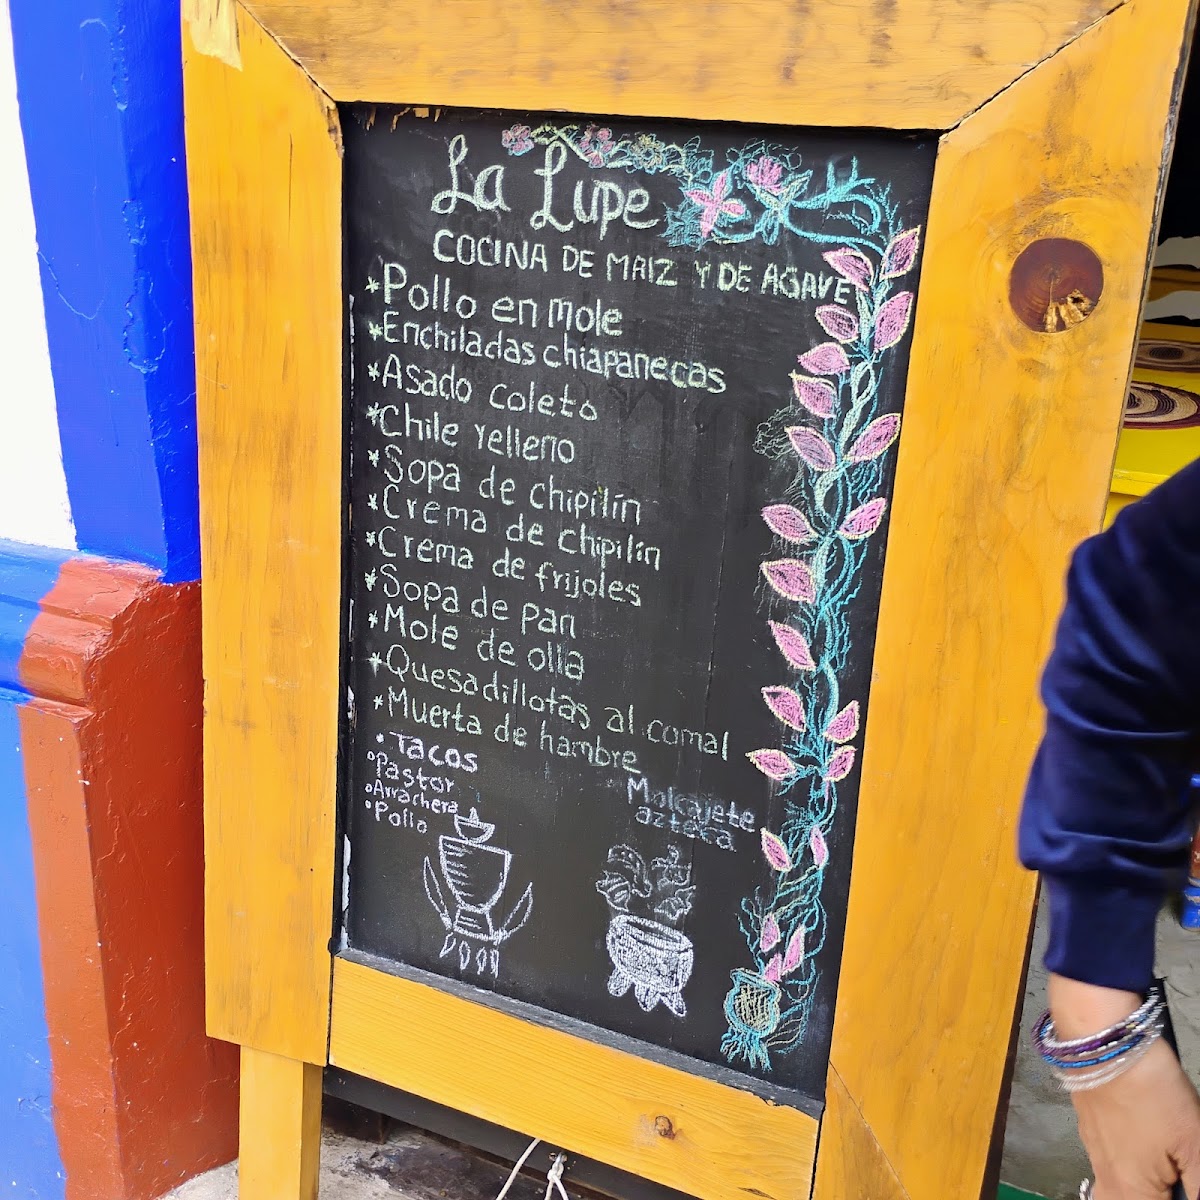 La Lupe
COCINA DE MAIZ Y DE AGAVE
*Pollo en mole
*Enchiladas chiapanecas
*Asado coleto
*Chile relleno
*Sopa de chipilín
*Crema de chipilín
*Crema de frijoles
*Sopa de pan
*Mole de olla
*Quesadillotas al comal
*Muerta de hambre
• Tacos
°Pastor
°Arrachera
°Pollo
Molcajete
azteca